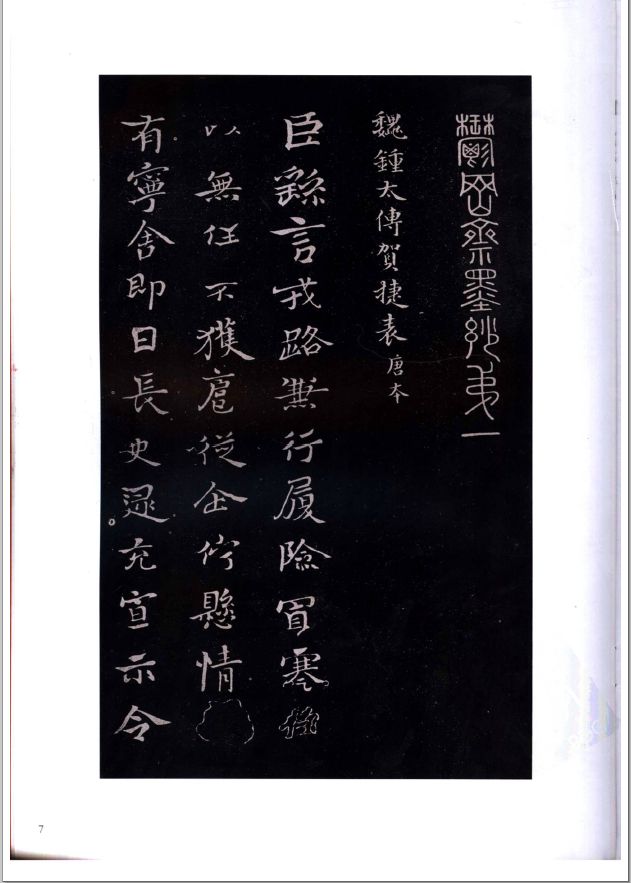 鬱岡齋墨玅弟一
魏鍾太傅賀捷表 唐本
臣繇言戎路兼行履險冒寒
以無任不獲扈從企佇懸情
有寧舍即日長史逯充宣示令
7